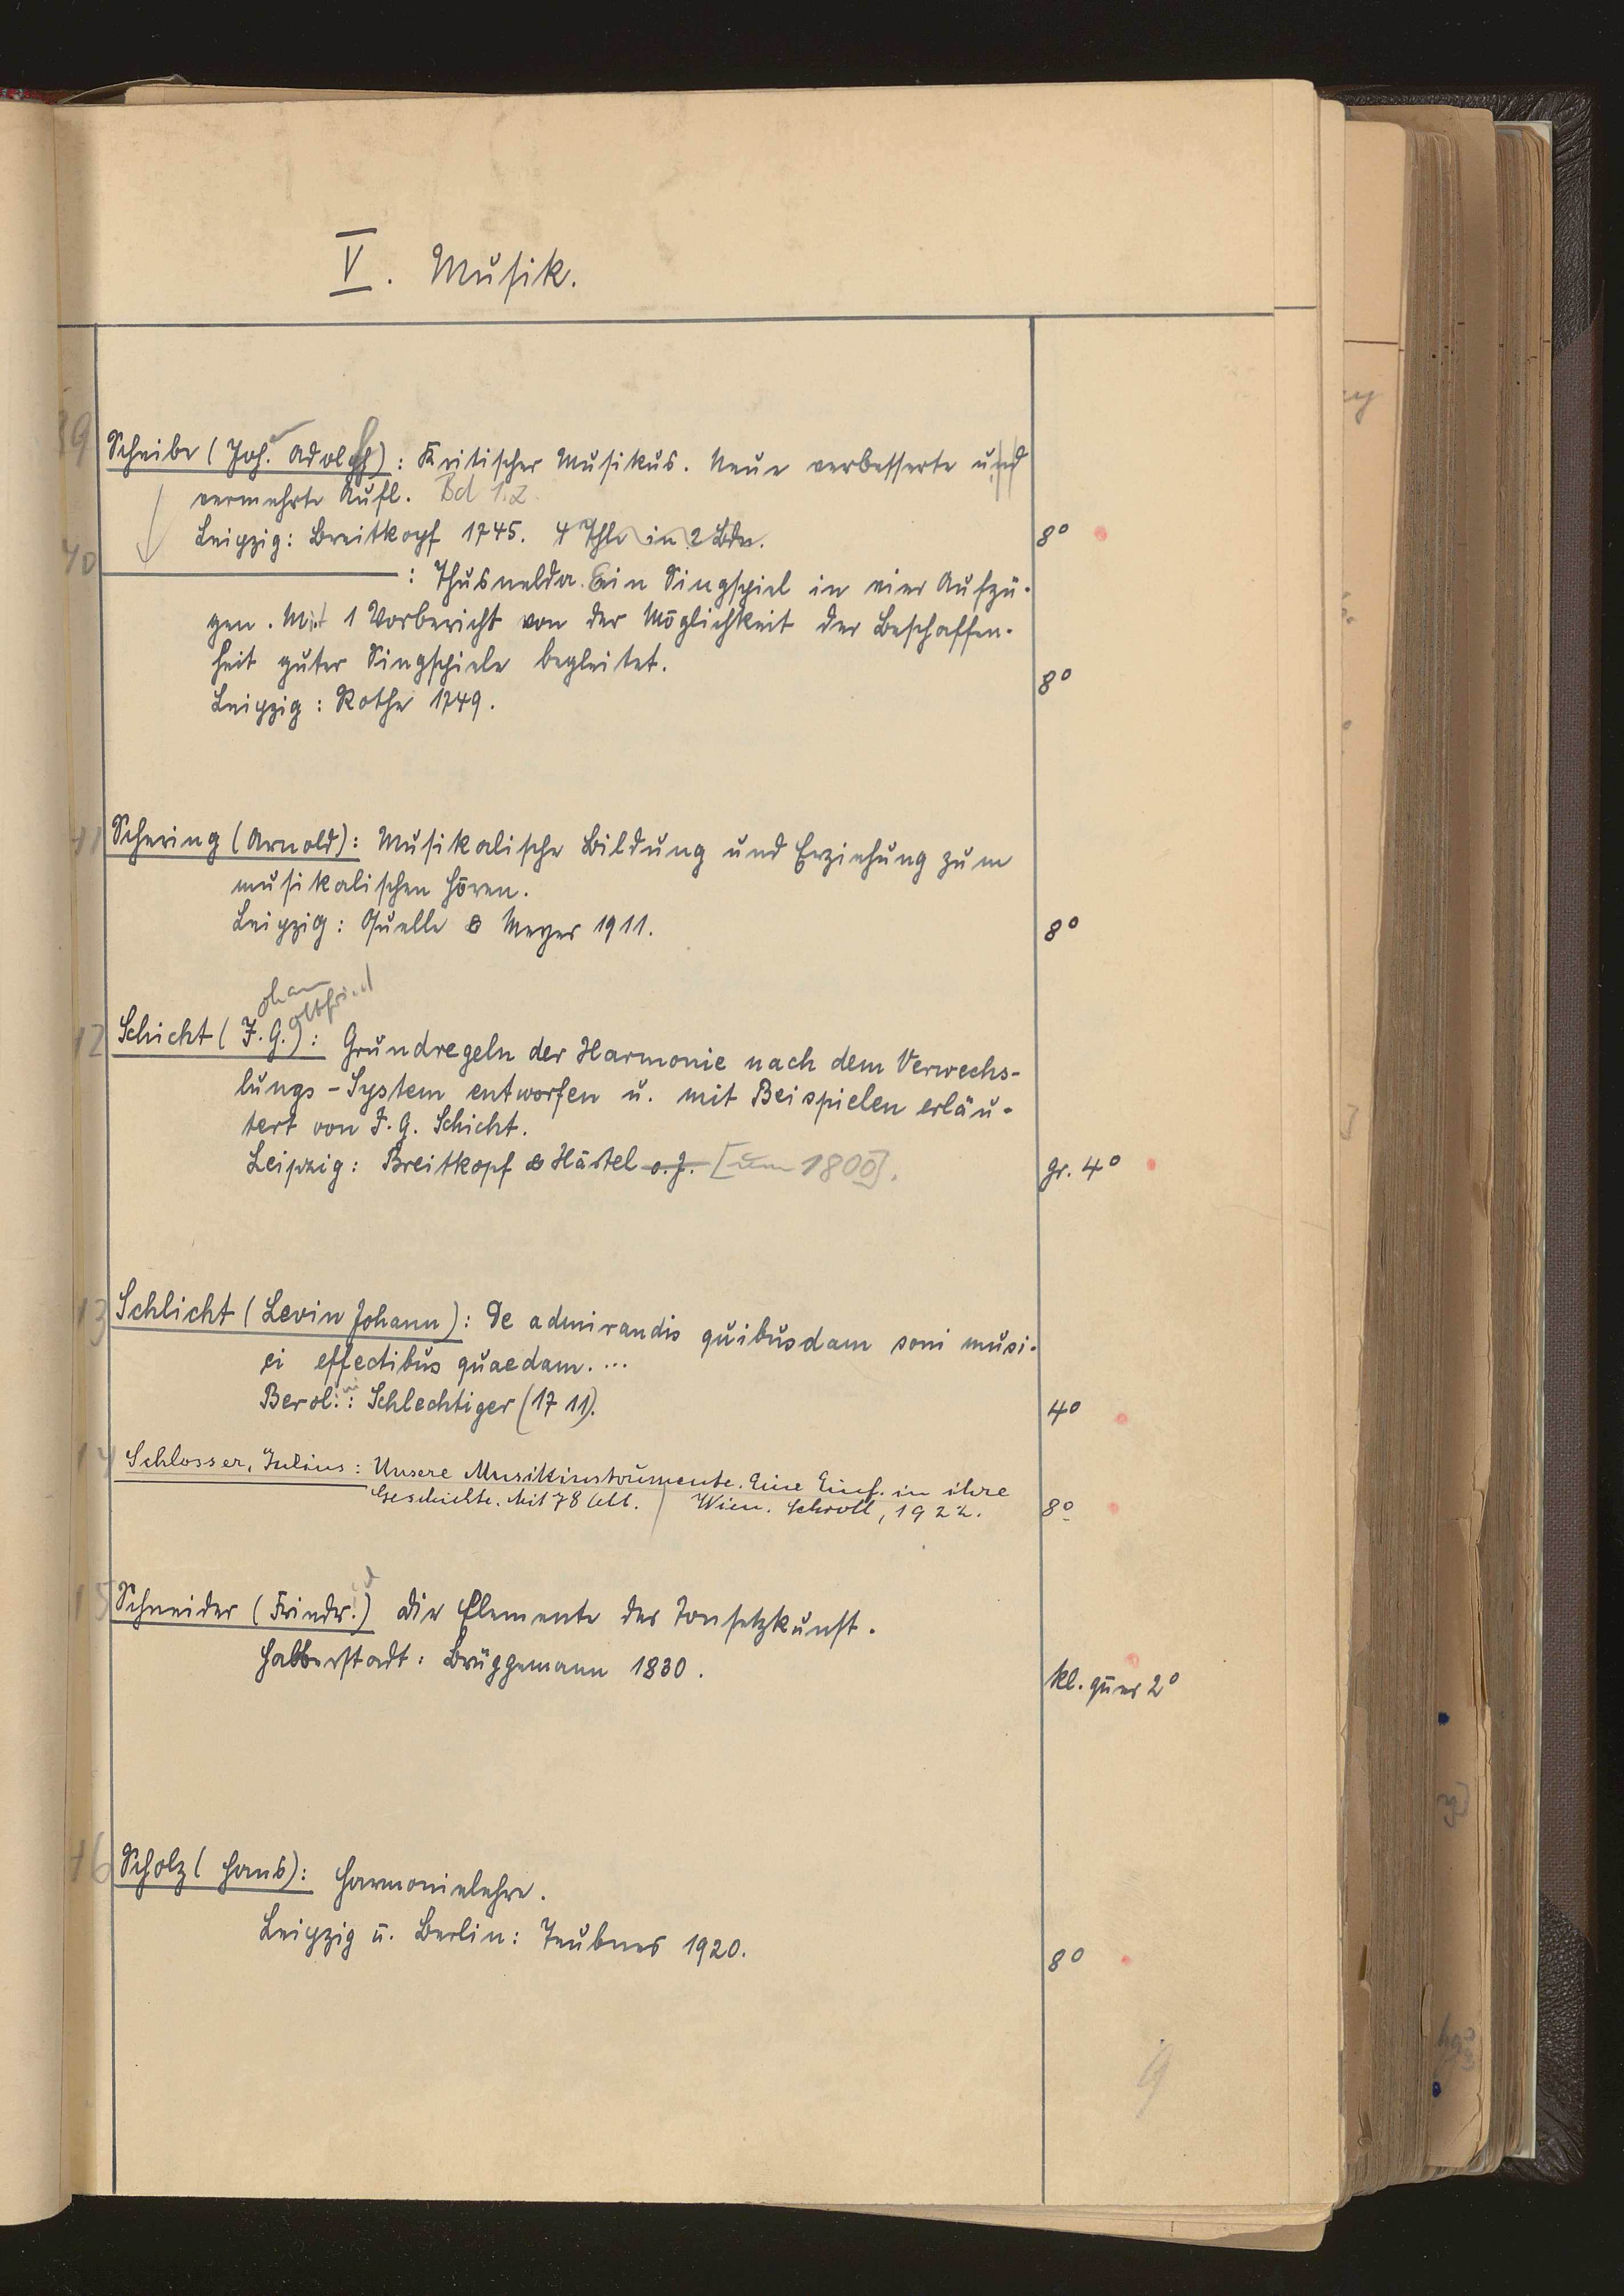 V. Musik.
39
Scheibe (Joh. Adolph): Kritischer Musikus. Neue verbesserte und
vermehrte Aufl. Bd 1.2.
Leipzig: Breitkopf 1745. 4 Thle in 2 Bdn. 8°
40
: Thusnelda. Ein Singspiel in vier Aufzü-
gen. Mit 1 Vorbericht von der Möglichkeit der Beschaffen-
heit guter Singspiele begleitet. 8°
Leipzig: Rothe 1749.
41 Schering (Arnold): Musikalische Bildung und Erziehung zum
musikalischen Hören.
Leipzig: Quelle & Meyer 1911. 8°
ohann
ottfried
12 Schicht (J. G.): Grundregeln der Harmonie nach dem Verwechs-
lungs-System entworfen u. mit Beispielen erläu-
tert von J. G. Schicht.
Leipzig: Breitkopf & Härtel o. J. [um 1800]. gr. 4°
13 Schlicht (Levin Johann): De admirandis quibusdam soni musi-
ci effectibus quaedam. ...
Berol.: Schlechtiger (1711). 4°
14 Schlosser, Julius: Unsere Musikinstrumente. Eine Einf. in ihre
Geschichte. Mit 78 Abb. / Wien. Schroll, 1922. 8°
15 Schneider (Friedr.) Die Elemente der Tonsetzkunst.
Halberstadt: Brüggemann 1830. kl. quer 2°
46 Scholz (Hans): Harmonielehre.
Leipzig u. Berlin: Teubner 1920. 8°